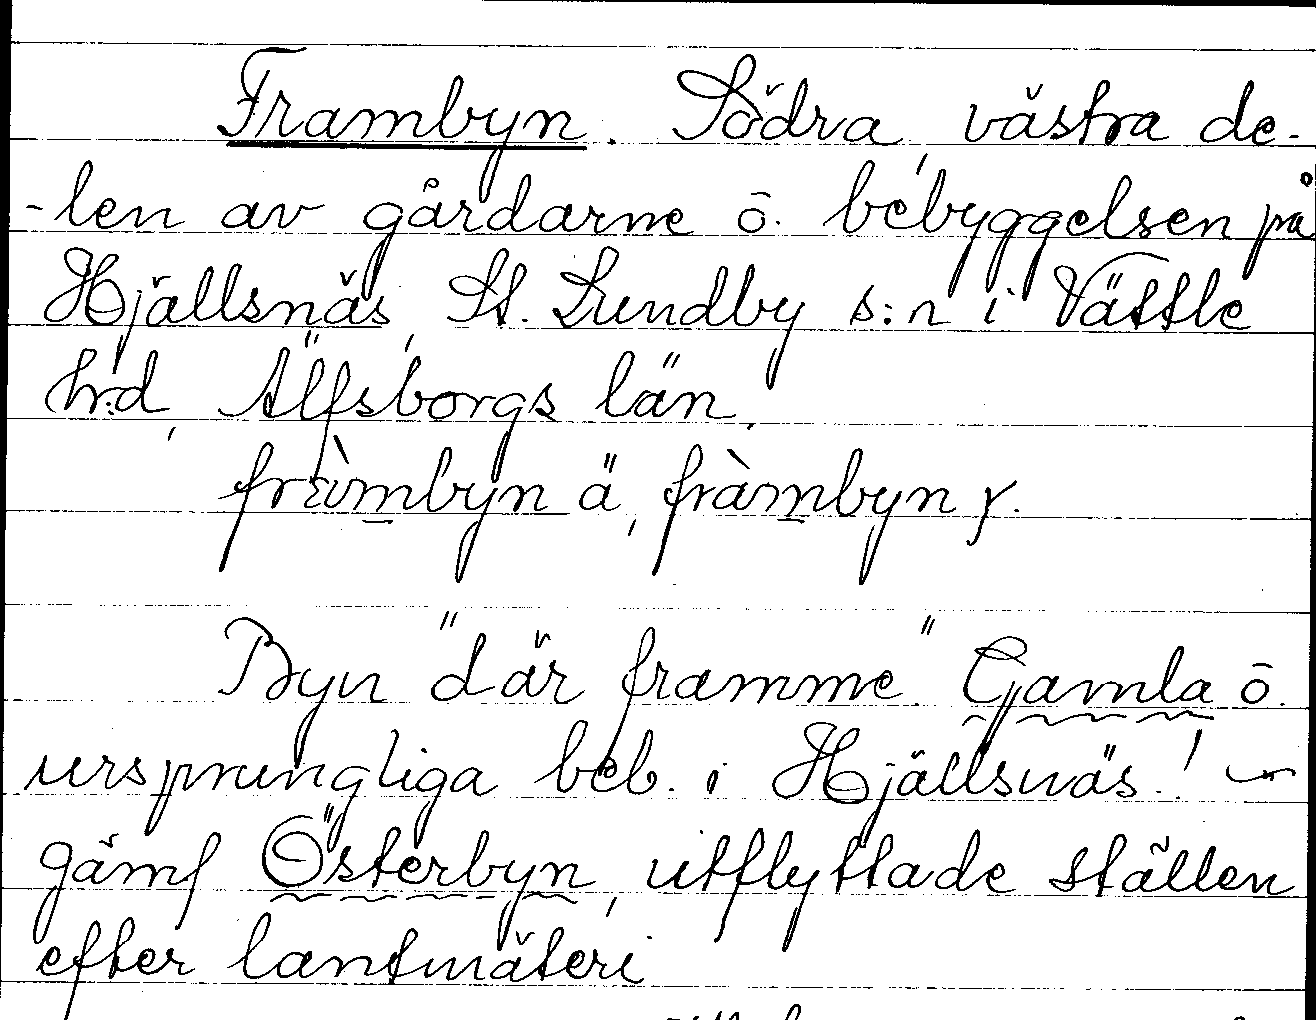 Frambyn. Södra, västra de-
-len av gårdarne ō. bebyggelsen på
Hjällsnäs, St. Lundby s:n i Vättle
hrd, Älfsborgs län,
fràmbyn ä, fràmbyn y.
Byn "där framme". Gamla ō.
ursprungliga beb. i Hjällsnäs!
gämf Österbyn, utflyttade ställen
efter lantmäteri